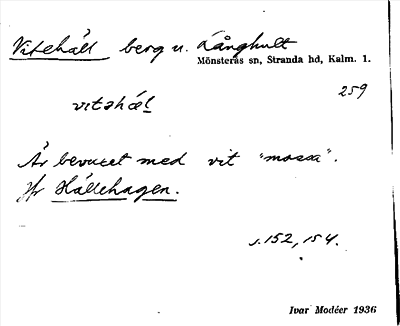 Vitehäll berg u. Långhult
Mönsterås sn, Stranda hd, Kalm. l.
259
vitəhæl
Är bevuxet med vit "mossa".
Jfr Hällehagen.
s. 152, 154.
Ivar Modéer 1936